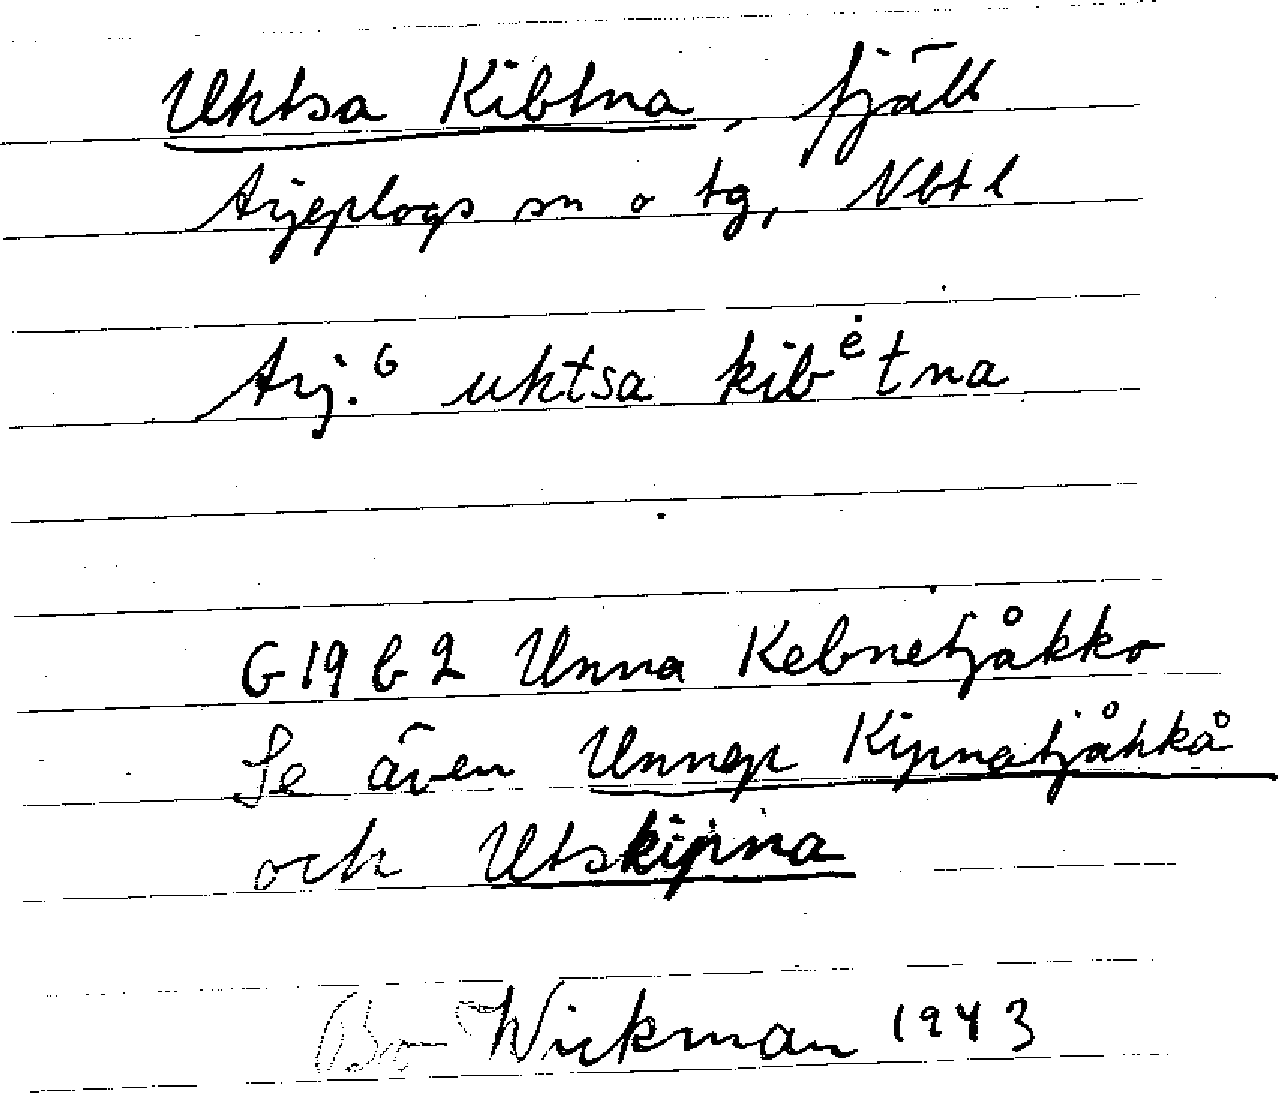 Uktsa Kibtna, fjäll
Arjeplogs sn o tg, Nbt l
Arj.ᴳ uktsa kibᵉ̇tna
G 19 b 2 Unna Kebnetjåkko
Se även Unnep Kipnatjåhkå
och Utskipna
Bo Wickman 1943